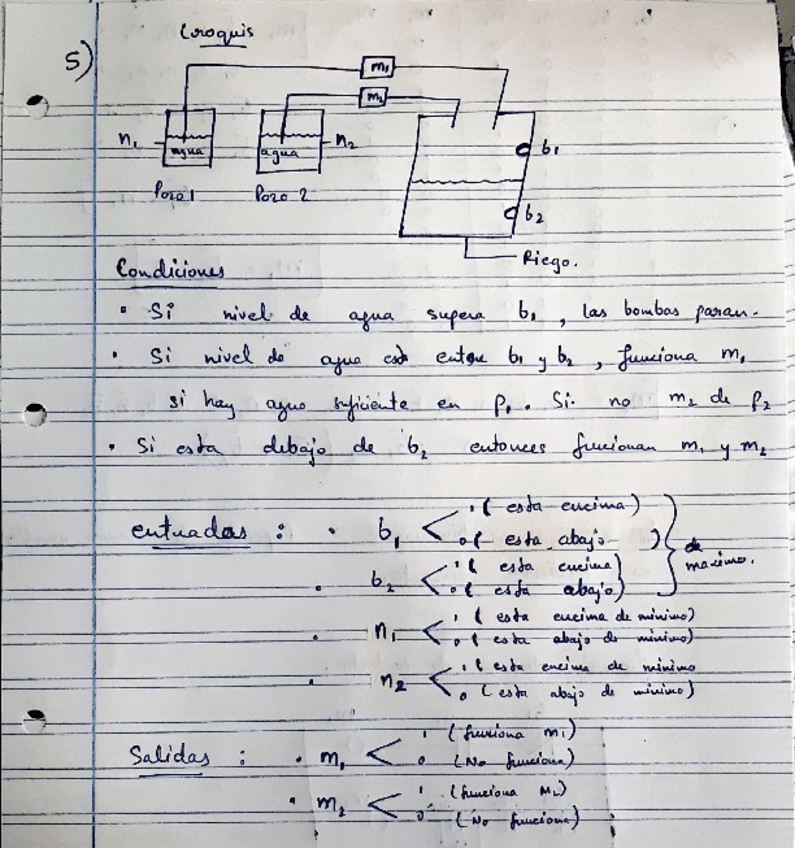 Croquis
5)
m₁
m₂
n₁
agua
agua
n₂
b₁
Pozo 1
Pozo 2
b₂
Riego.
Condiciones
• Si nivel de agua supera b₁, las bombas paran.
• Si nivel de agua está entre b₁ y b₂, funciona m₁
si hay agua suficiente en p₁. Si no m₂ de p₂
• Si esta debajo de b₂ entonces funcionan m₁ y m₂
entradas : • b₁ < 1 ( esta encima)
0 ( esta abajo )
de maximo.
• b₂ < 1 ( esta encima)
0 ( esta abajo)
• n₁ < 1 ( esta encima de minimo)
0 ( esta abajo de minimo)
• n₂ < 1 ( esta encima de minimo
0 (esta abajo de minimo)
Salidas : • m₁ < 1 (funciona m₁)
0 (No funciona)
• m₂ < 1 (funciona M₂)
0 (No funciona)